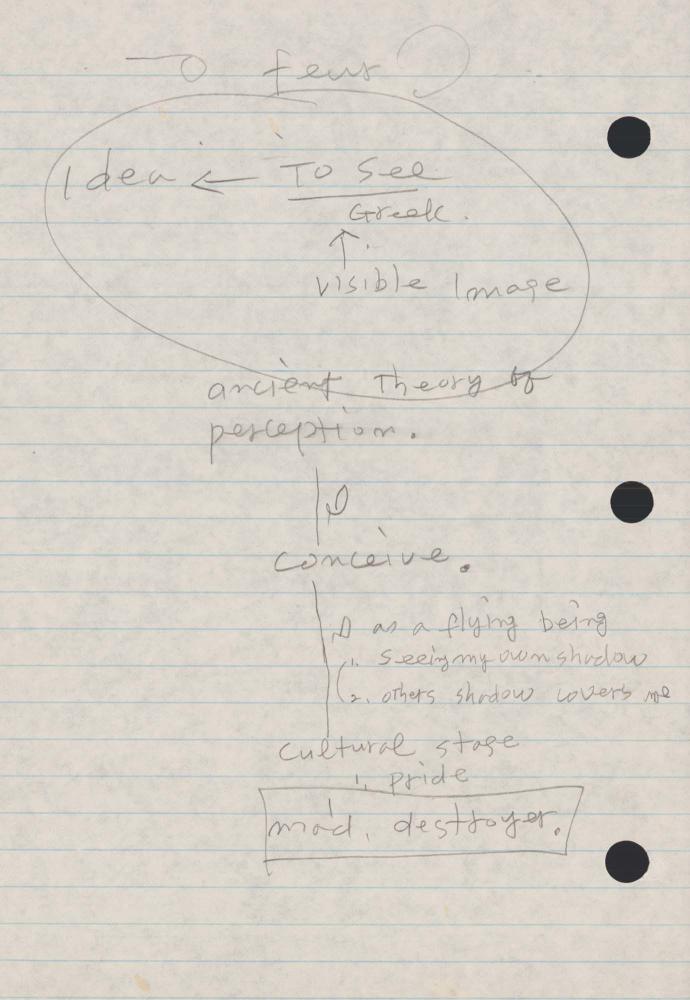 fear
Idea ← To see
Greek.
↑
visible Image
ancient theory of
perception.
conceive.
as a flying being
1. seeing my own shadow
2. others shadow covers me
cultural stage
1. pride
mad, destroyer.